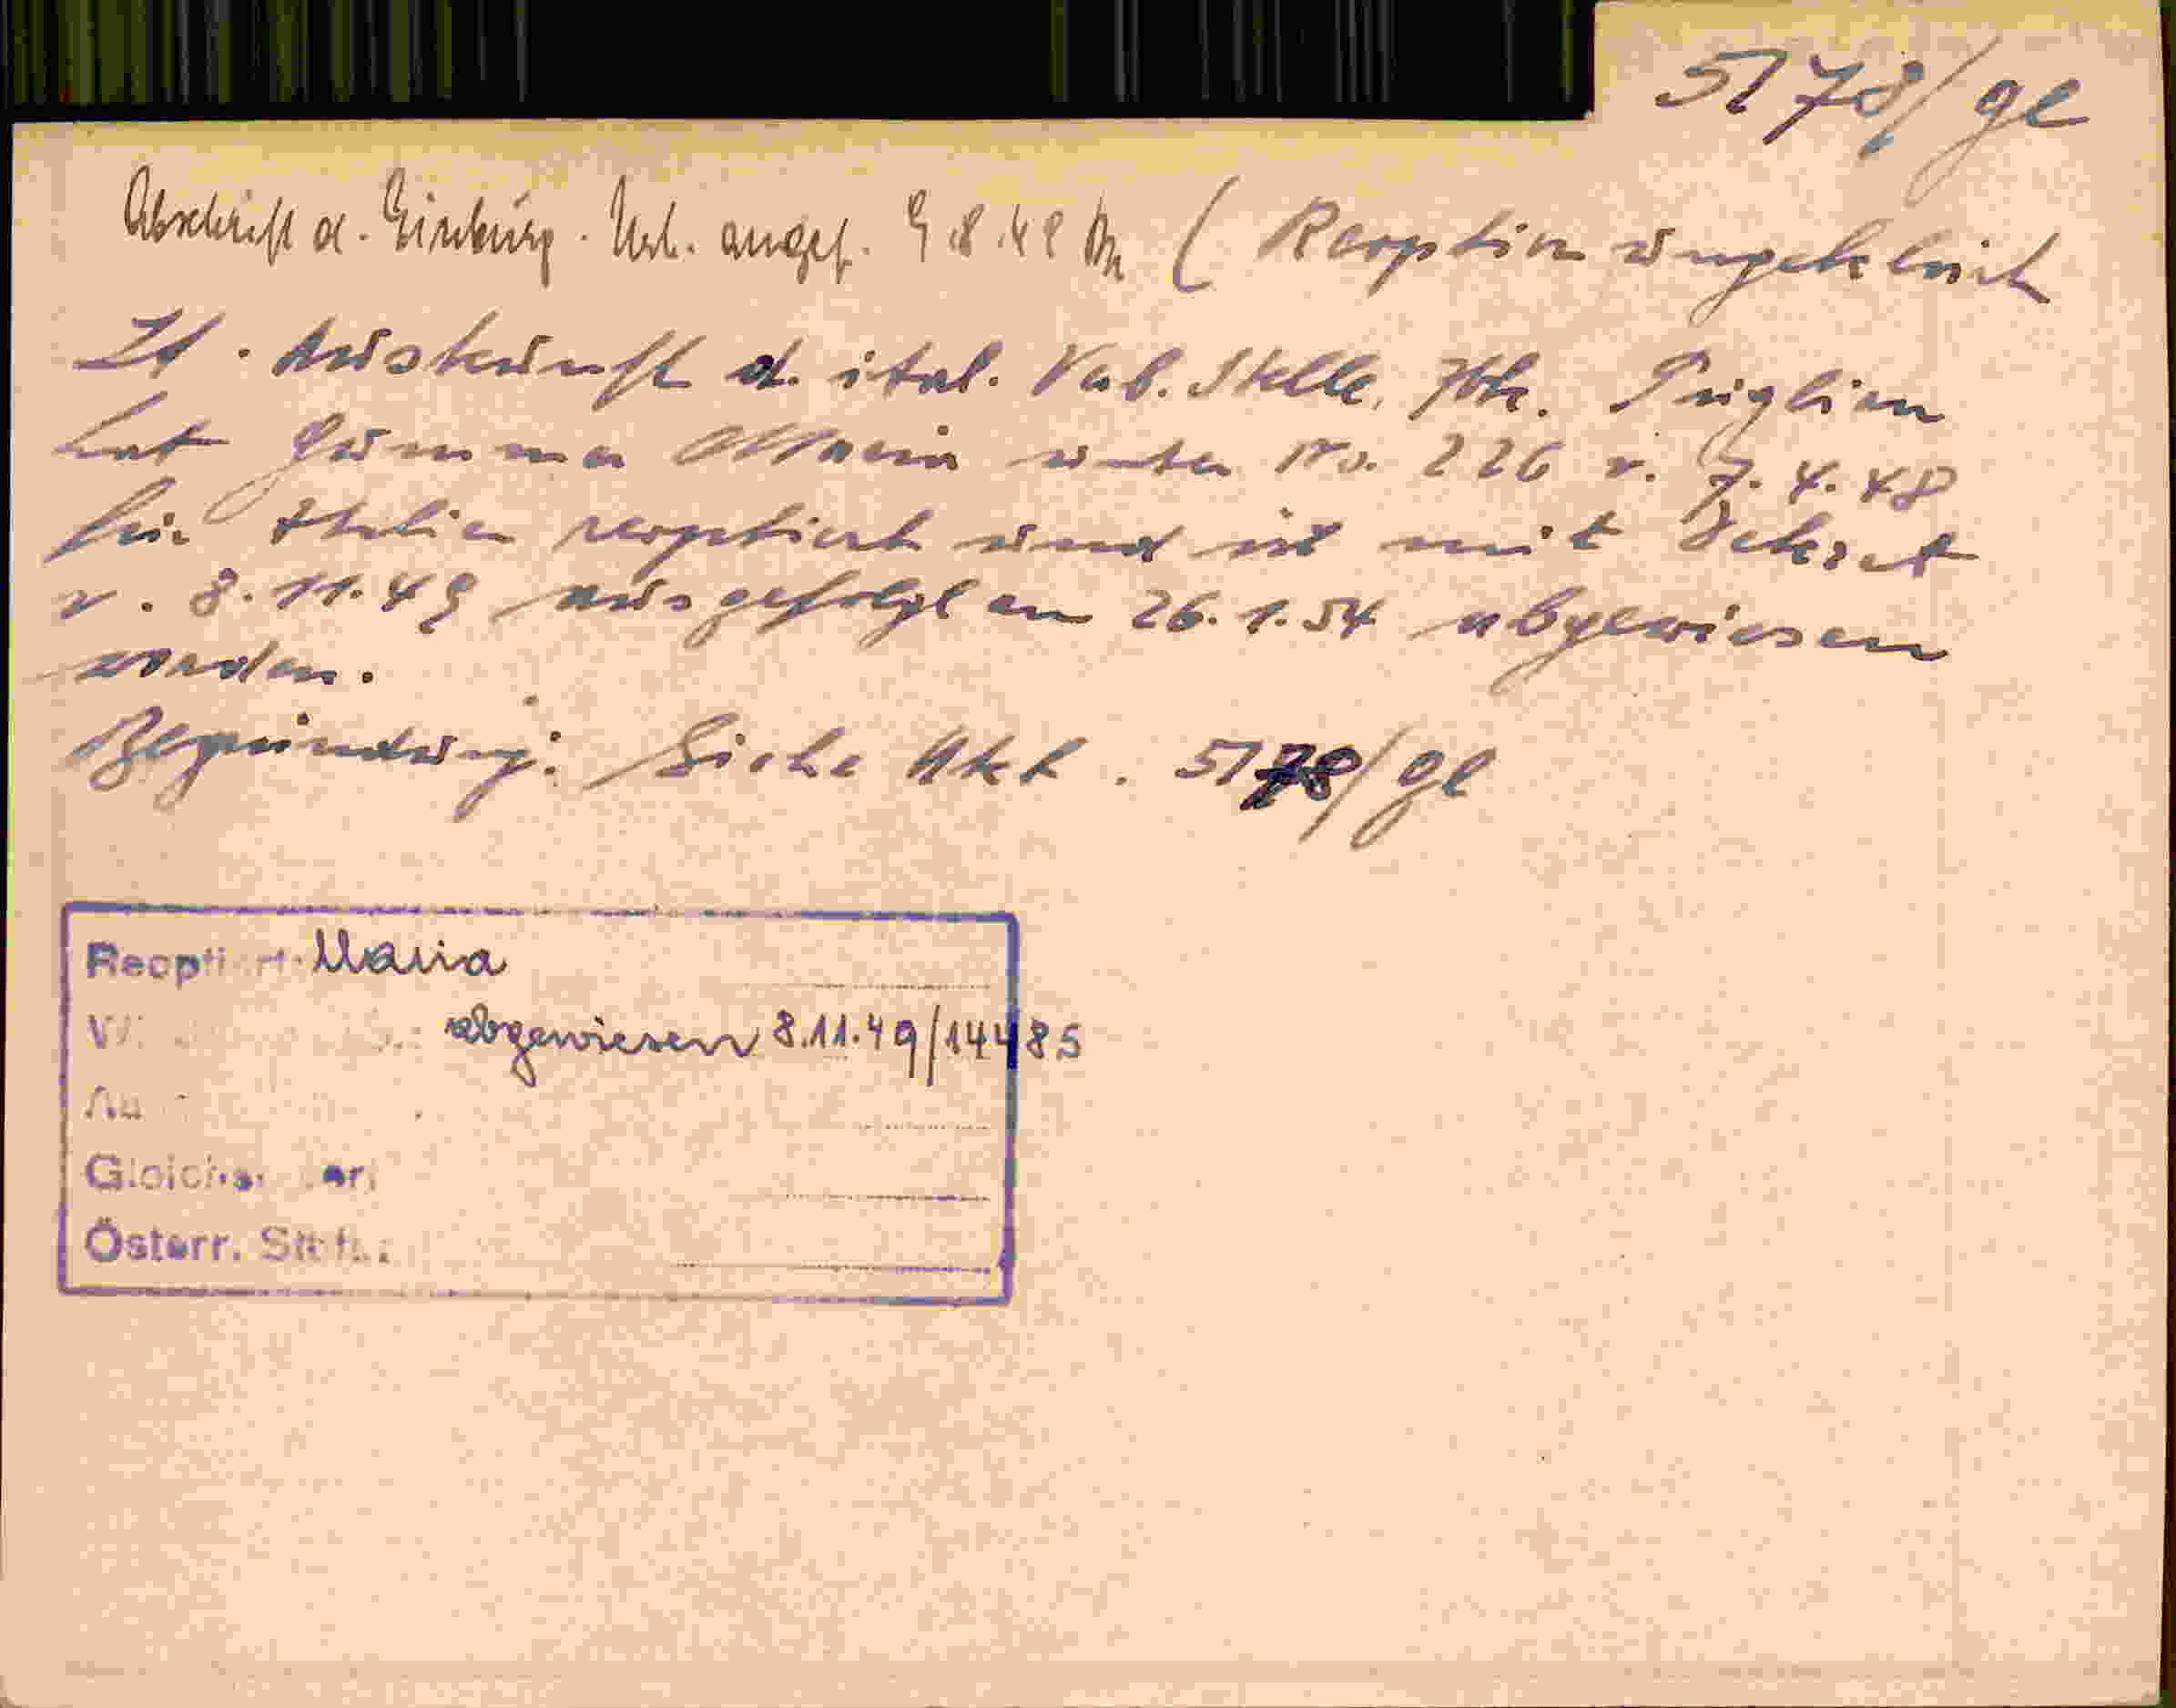 5178/gl
Abschrift d. Einbürg. Urk. angef. 9.8.48 (Reoption ungeklärt
Lt. Auskunft d. ital. Verb. Stelle, Ibk. Puglien
hat Gumma Maria unter No. 226 v. 7.4.48
für Italien reoptiert und ist mit Dekret
v. 8.11.49 ausgefolgt am 26.1.54 abgewiesen
worden.
Begründung: Siehe Akt. 5178/gl
Reoptiert Maria
abgewiesen 8.11.49/14485
Österr.